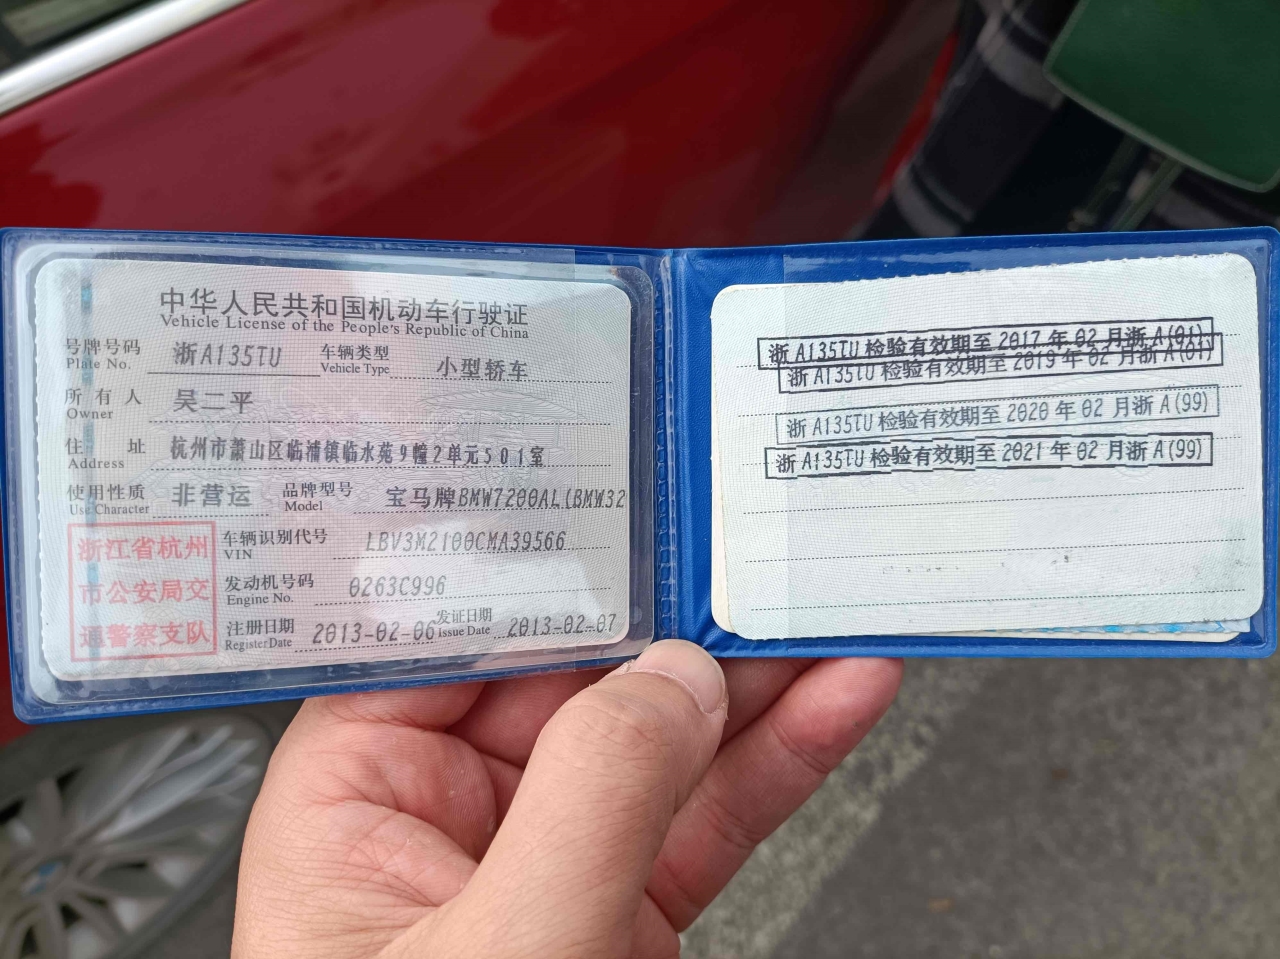 中华人民共和国机动车行驶证
Vehicle License of the People's Republic of China
号牌号码 浙A135TU 车辆类型 小型轿车
Plate No. Vehicle Type
所有人 吴二平
Owner
住址 杭州市萧山区临浦镇临水苑9幢2单元501室
Address
使用性质 非营运 品牌型号 宝马牌BMW7200AL(BMW32
Use Character Model
浙江省杭州
市公安局交
通警察支队
车辆识别代号 LBV3M2100CMA39566
VIN
发动机号码 0263C996
Engine No.
注册日期 2013-02-06 发证日期 2013-02-07
Register Date Issue Date
浙A135TU 检验有效期至 2017 年 02 月浙A(01)
浙A135TU 检验有效期至 2019 年 02 月浙A(01)
浙A135TU 检验有效期至 2020 年 02 月浙A(99)
浙A135TU 检验有效期至 2021 年 02 月浙A(99)